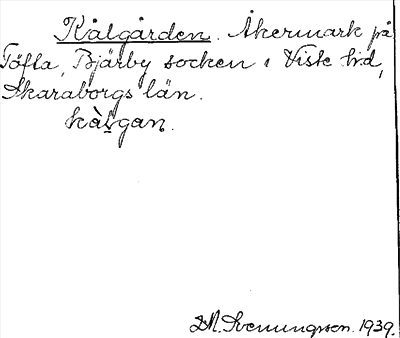 Kålgården. Åkermark på
Töfta, Bjärby socken i Viste hd,
Skaraborgs län.
kàlgan.
M. Svenungsson. 1939.